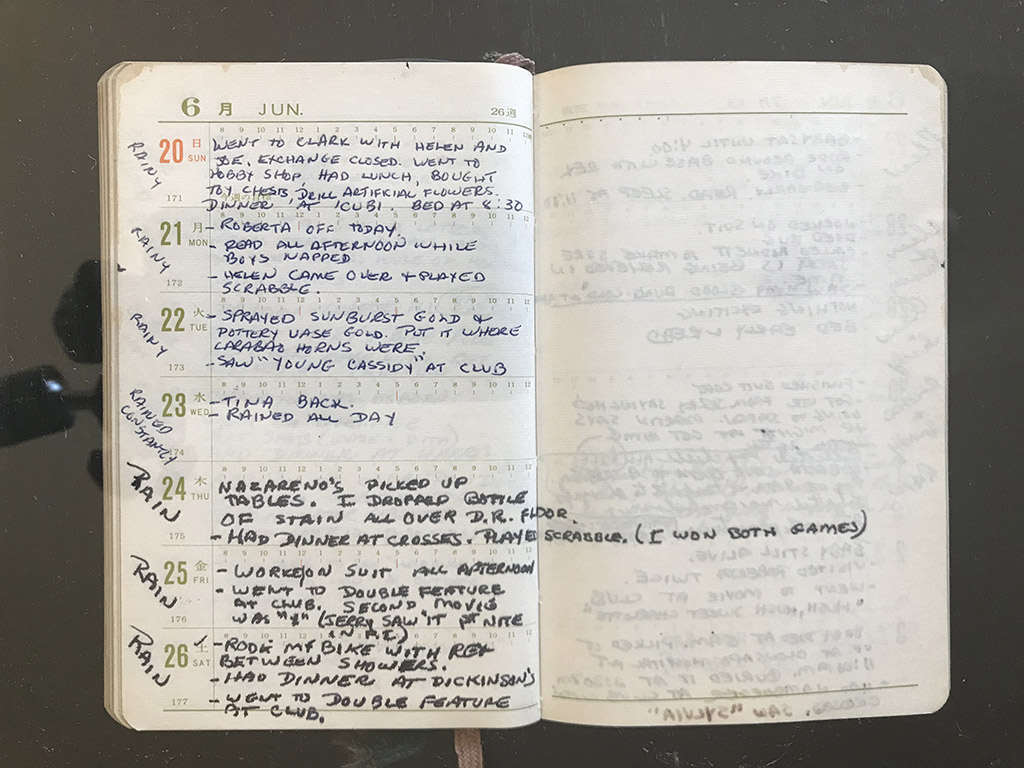 6 月 JUN. 26週
RAINY
20 日 SUN 171
WENT TO CLARK WITH HELEN AND
JOE. EXCHANGE CLOSED. WENT TO
HOBBY SHOP, HAD LUNCH, BOUGHT
TOY CHESTS, DRILL, ARTIFICIAL FLOWERS.
DINNER AT "CUBI. BED AT 8:30
RAINY
21 月 MON 172
- ROBERTA OFF TODAY.
- READ ALL AFTERNOON WHILE
BOYS NAPPED
- HELEN CAME OVER & PLAYED
SCRABBLE.
RAINY
22 火 TUE 173
- SPRAYED SUNBURST GOLD &
POTTERY VASE GOLD. PUT IT WHERE
CARABAO HORNS WERE.
- SAW "YOUNG CASSIDY" AT CLUB
RAINED CONSTANTLY
23 水 WED 174
- TINA BACK.
- RAINED ALL DAY
RAIN
24 木 THU 175
NAZARENO'S PICKED UP
TABLES. I DROPPED BOTTLE
OF STAIN ALL OVER D.R. FLOOR.
- HAD DINNER AT CROSSES. PLAYED SCRABBLE. (I WON BOTH GAMES)
RAIN
25 金 FRI 176
- WORKED ON SUIT ALL AFTERNOON
- WENT TO DOUBLE FEATURE
AT CLUB. SECOND MOVIE
WAS (JERRY SAW IT NITE
IN P.I.)
RAIN
26 土 SAT 177
- RODE MY BIKE WITH REX
BETWEEN SHOWERS.
- HAD DINNER AT DICKINSON'S
- WENT TO DOUBLE FEATURE
AT CLUB.